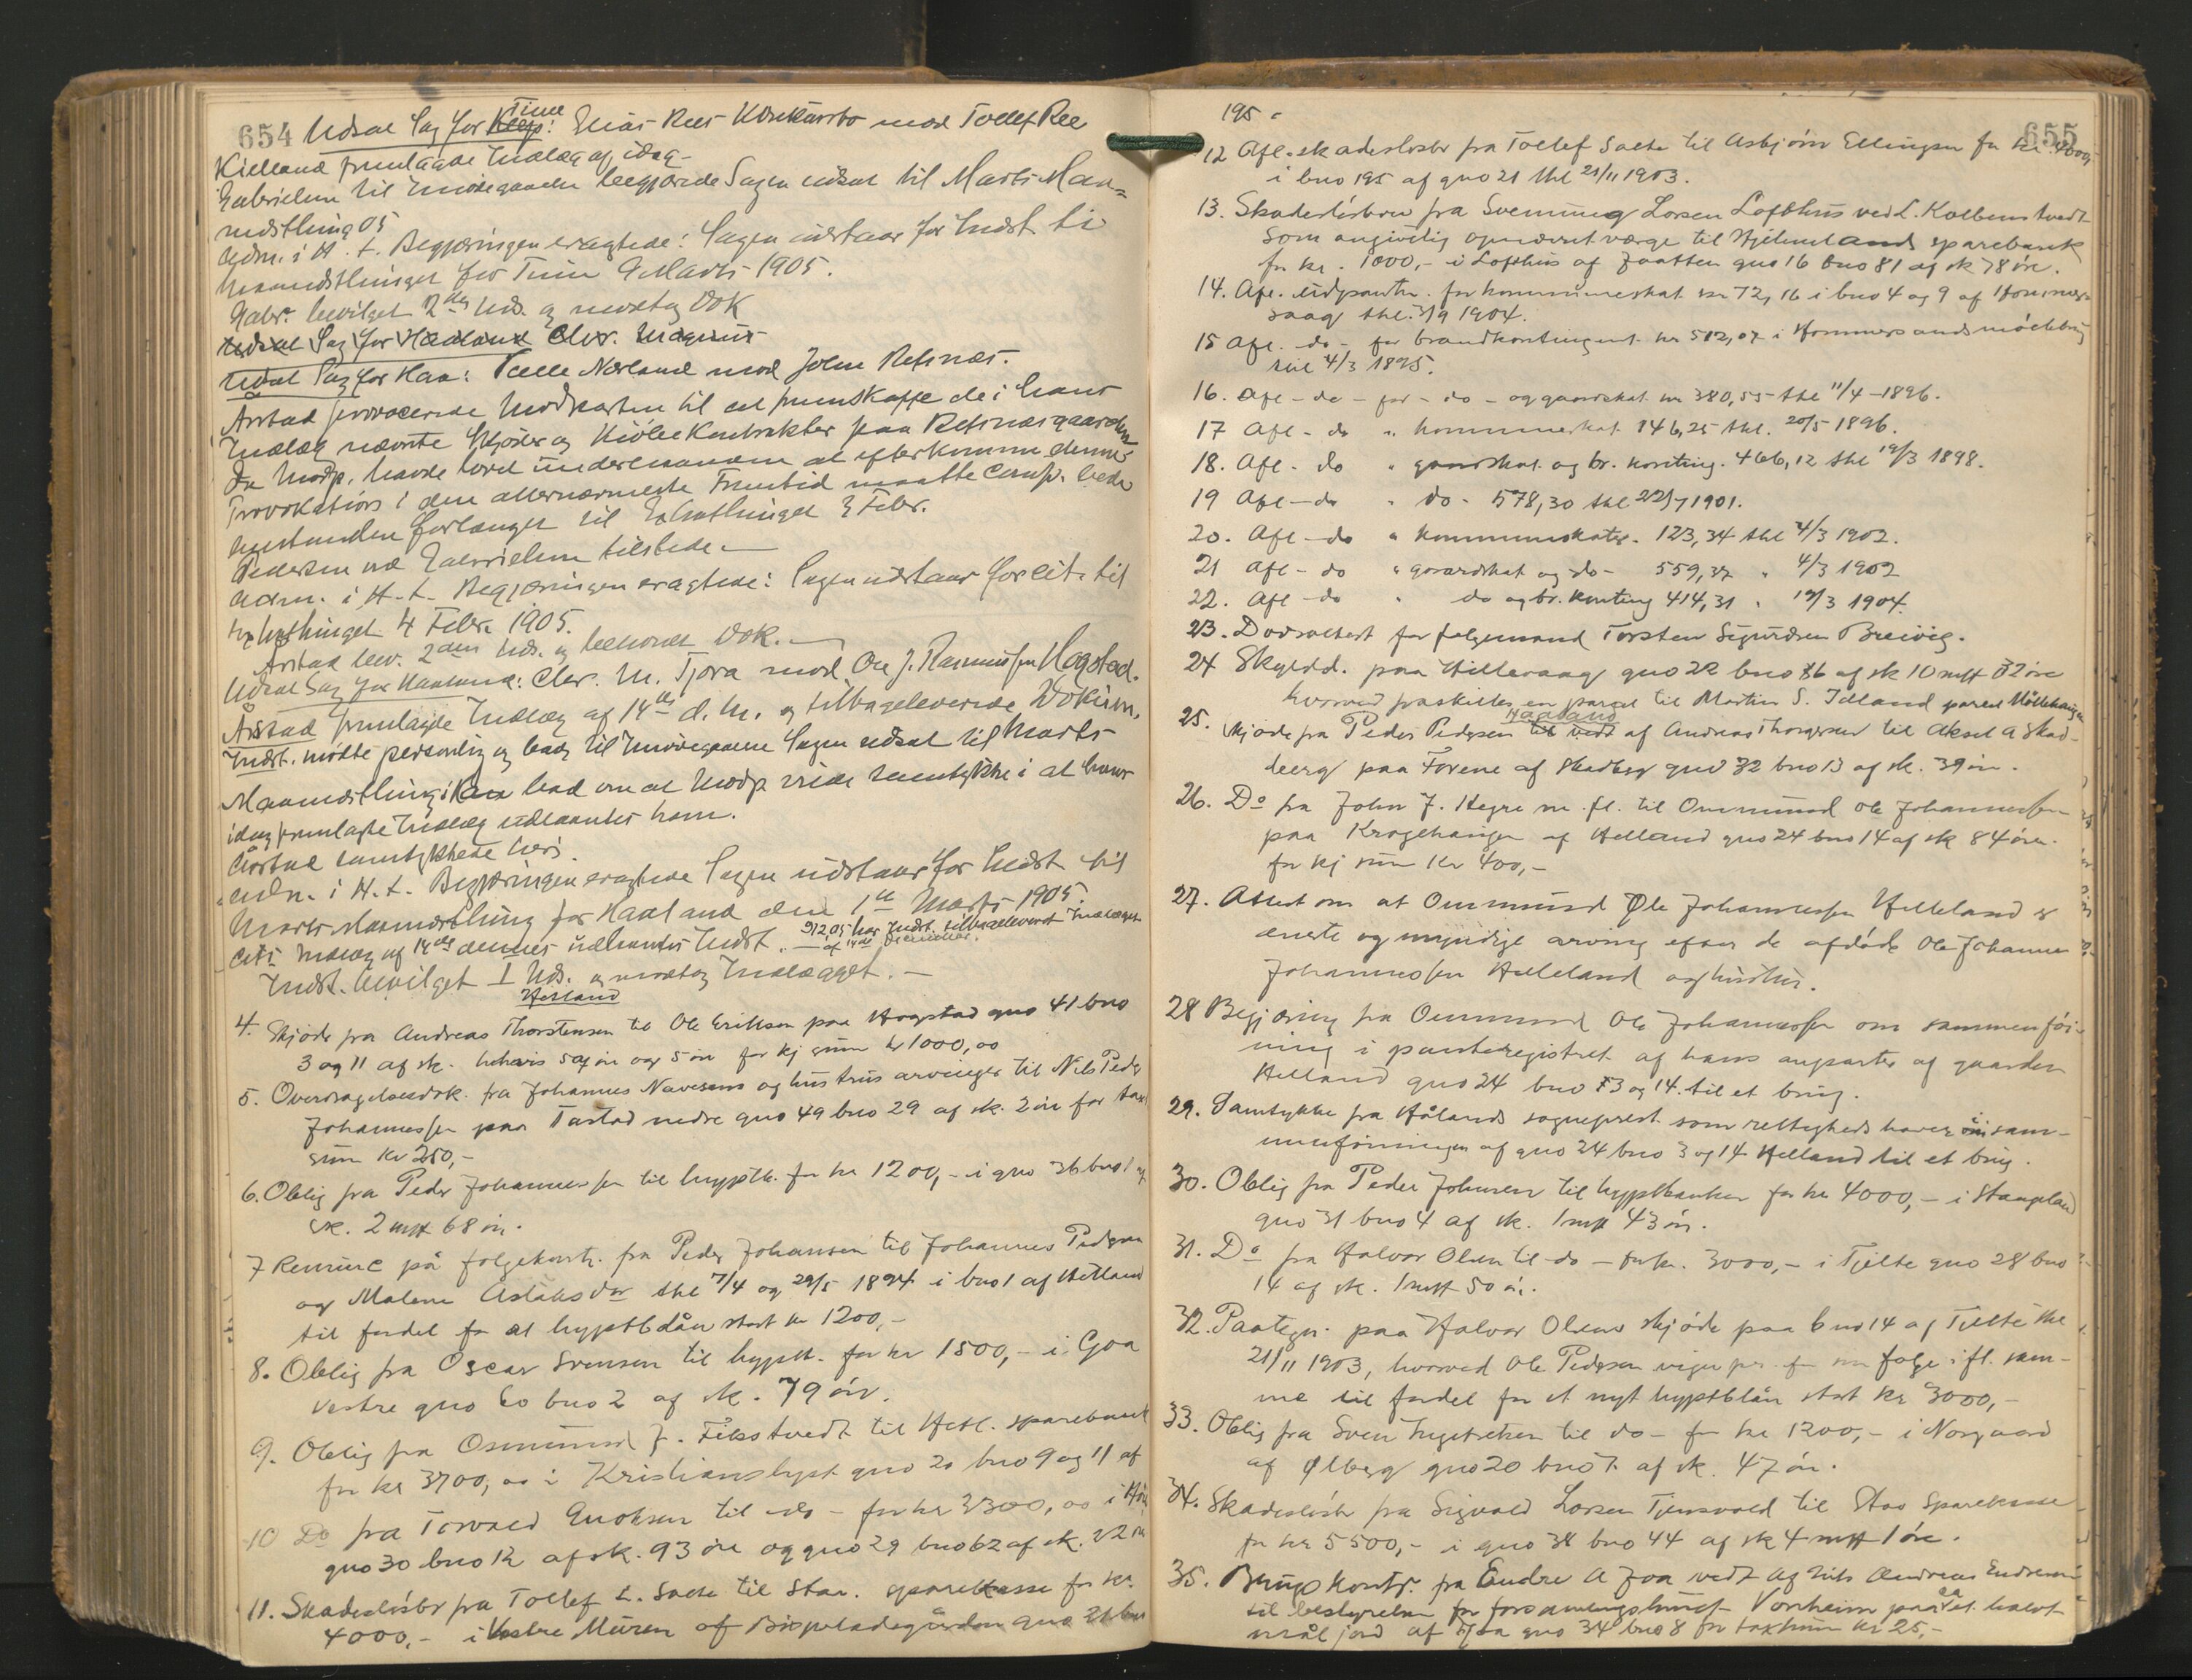 654 Udsat Sag for Time: Elias Rees Konkursbo mod Tollef Ree
Kielland fremlagde Indlæg af idag.
Gabrielsen til Imødegaaelse begjærede Sagen udsat til Marts Maa-
nedsthing 05
Adm. i H. t. Begjæringen eragtede: Sagen udstaar for Indst. til
Maanedsthinget for Time 9 Marts 1905.
Gabr. bevilget 2den Uds. og modtog Dok
Udsat Sag for Haaland Chr. Magnus
Udsat Sag for Haa: Tolle Nærland mod John Refsnæs.
Årstad provocerede Modparten til at fremskaffe de i hans
Indlæg nævnte Skjøder og Kontrakter paa Refsnæsgaarden
Da Modp. havde lovet underhaanden at efterkomme denne
Provokation i den allernærmeste Fremtid maatte Comp. bede
Anstanden forlænget til Extrathinget 3 Febr.
Pedersen ved Gabrielsen tilstede.
Adm. i H. t. Begjæringen eragtede: Sagen udstaar for Cit. til
Extrathinget 4 Febr. 1905.
Årstad bev. 2den Uds. og beholdt Dok.
Udsat Sag for Haaland: Chr. M. Tjora mod Ole J. Rasmussen Hogstad.
Årstad fremlagde Indlæg af 14de d. M. og tilbageleverede Dokum.
Indst. mødte personlig og bad til Imødegaaelse Sagen udsat til Marts
Maanedsthing i Haa bad om at Modp vilde samtykke i at hans
idag fremlagte Indlæg udlaantes ham.
Årstad samtykkede heri.
Adm. i H. t. Begjæringen eragtede Sagen udstaar for Indst til
Marts Maanedsthing for Haaland den 1ste Marts 1905.
Cits Indlæg af 14de dennes udlaantes Indst. 9/2 05 har Indst. tilbageleveret Indlægget
af 14de December.
Indst. bevilget I Uds. og modtog Indlægget. —
Hetland
4. Skjøde fra Andreas Thorstensen til Ole Eriksen paa Hogstad gno 41 bno
3 og 11 af sk. holdvis 59 øre og 5 øre for kj sum kr 1000,00
5. Overdragelsesdok. fra Johannes Navesens og hustrus arvinger til Nils Peder
Johannessen paa Tastad nedre gno 49 bno 29 af sk. 2 øre for tax
sum kr 250,-
6. Oblig fra Peder Johannessen til hypbk. for kr 1200,- i gno 36 bno 1 af
sk. 2 mrk 68 øre.
7 Renunc på følgekontr. fra Peder Johansen til Johannes Pedersen
og Malene Aslaksdr thl 7/4 og 29/5 1894 i bno 1 af Hetland
til fordel for et hypbklån stort kr 1200,-
8. Oblig fra Oscar Svensen til hypbk. for kr 1500,- i Goa
vestre gno 60 bno 2 af sk. 79 øre.
9. Oblig fra Osmund J. Fikstvedt til Hetl. sparebank
for kr 3700,00 i Kristianslyst gno 20 bno 9 og 11 af
10 Do fra Torvald Enoksen til do - for kr 3300,00 i
gno 30 bno 12 af sk. 93 øre og gno 29 bno 62 af sk. 22 øre
11. Skadesløsbr fra Tollef L. Sætre til Stav. sparekasse for kr.
4000,- i Vestre Muren af Bispeladegården gno 21 bno
195.
655
12 Afl. skadesløsbr fra Tollef Sætre til Asbjørn Ellingsen for kr. 4000,
i bno 195 af gno 21 thl 21/11 1903.
13. Skadesløsbrev fra Svenning Larsen Lofthus ved L. Kolbenstvedt
som angivelig opnævnt værge til Hjelmelands sparebank
for kr. 1000,- i Lofthus af Jaatten gno 16 bno 81 af sk 78 øre.
14. Afl. udpantn. for kommuneskat kr 72,16 i bno 4 og 9 af Hommers-
aag thl. 3/9 1904.
15 Afl. do - for brandkontingent kr 512,07 i Hommersands møllebrug
thl 4/3 1895.
16. Afl - do - for - do - og gaardskat kr 380,55 thl 11/4 - 1896.
17 Afl - do " kommuneskat 146,25 thl. 20/5 1896.
18. Afl - do " gaardskat og br. konting. 466,12 thl 19/3 1898.
19 Afl - do " do - 578,30 thl 22/7 1901.
20. Afl - do " kommuneskatter. 123,34 thl 4/3 1902.
21 Afl - do " gaardskat og do - 559,37 " 4/3 1902
22. Afl - do " do og br. konting 414,31 " 19/3 1904.
23. Dødsattest for følgemand Torsten Sigurdsen Breivig.
24 Skyldd. paa Hillevaag gno 22 bno 86 af sk 10 mrk 32 øre
hvorved fraskilles en parcel til Martin S. Idland parcel Møllehaugen
Haaland
25. Skjøde fra Peder Pedersen til vedt af Andreas Thorgersen til Aksel A Skad-
berg paa Forene af Skadberg gno 32 bno 13 af sk. 39 øre.
26. Do fra John J. Hegre m. fl. til Ommund Ole Johannessen
paa Kragehaugen af Helland gno 24 bno 14 af sk 84 øre.
for kj sum kr 400,-
27. Attest om at Ommund Ole Johannessen Helleland er
eneste og myndige arving efter de afdøde Ole Johannes
Johannessen Helleland og hustru.
28 Begjæring fra Ommund Ole Johannessen om sammenføi-
ning i panteregistret af hans anparter af gaarden
Helland gno 24 bno 3 og 14 til et brug.
29. Samtykke fra Hålands sogneprest som rettighedshaver i sam-
menføiningen af gno 24 bno 3 og 14 Helland til et brug.
30. Oblig fra Peder Johnsen til hypbanken for kr 4000,- i Stangeland
gno 31 bno 4 af sk. 1 mrk 43 øre.
31. Do fra Halvor Olsen til do - for kr. 3000,- i Tjelte gno 28 bno
14 af sk. 1 mrk 50 øre.
32. Paategn. paa Halvor Olsens skjøde paa bno 14 af Tjelte thl
21/11 1903, hvorved Ole Pedersen viger pr. for sin følge ifl. sam-
me til fordel for et nyt hypbklån stort kr 3000,-
33. Oblig fra Sven Ingebretsen til do - for kr 1200,- i Norgaard
af Ølberg gno 20 bno 7. af sk. 47 øre.
34. Skadesløsbr fra Sigvald Larsen Tjensvold til Stav Sparekasse
for kr 5500,- i gno 38 bno 44 af sk 4 mrk 1 øre.
35. Brugskontr. fra Endre A Joa vedt af Nils Andreas Endresen
til bestyrelsen for forsamlingshuset Vonheim paa et halvt
mål jord af Joa gno 34 bno 8 for taxsum kr 25,-